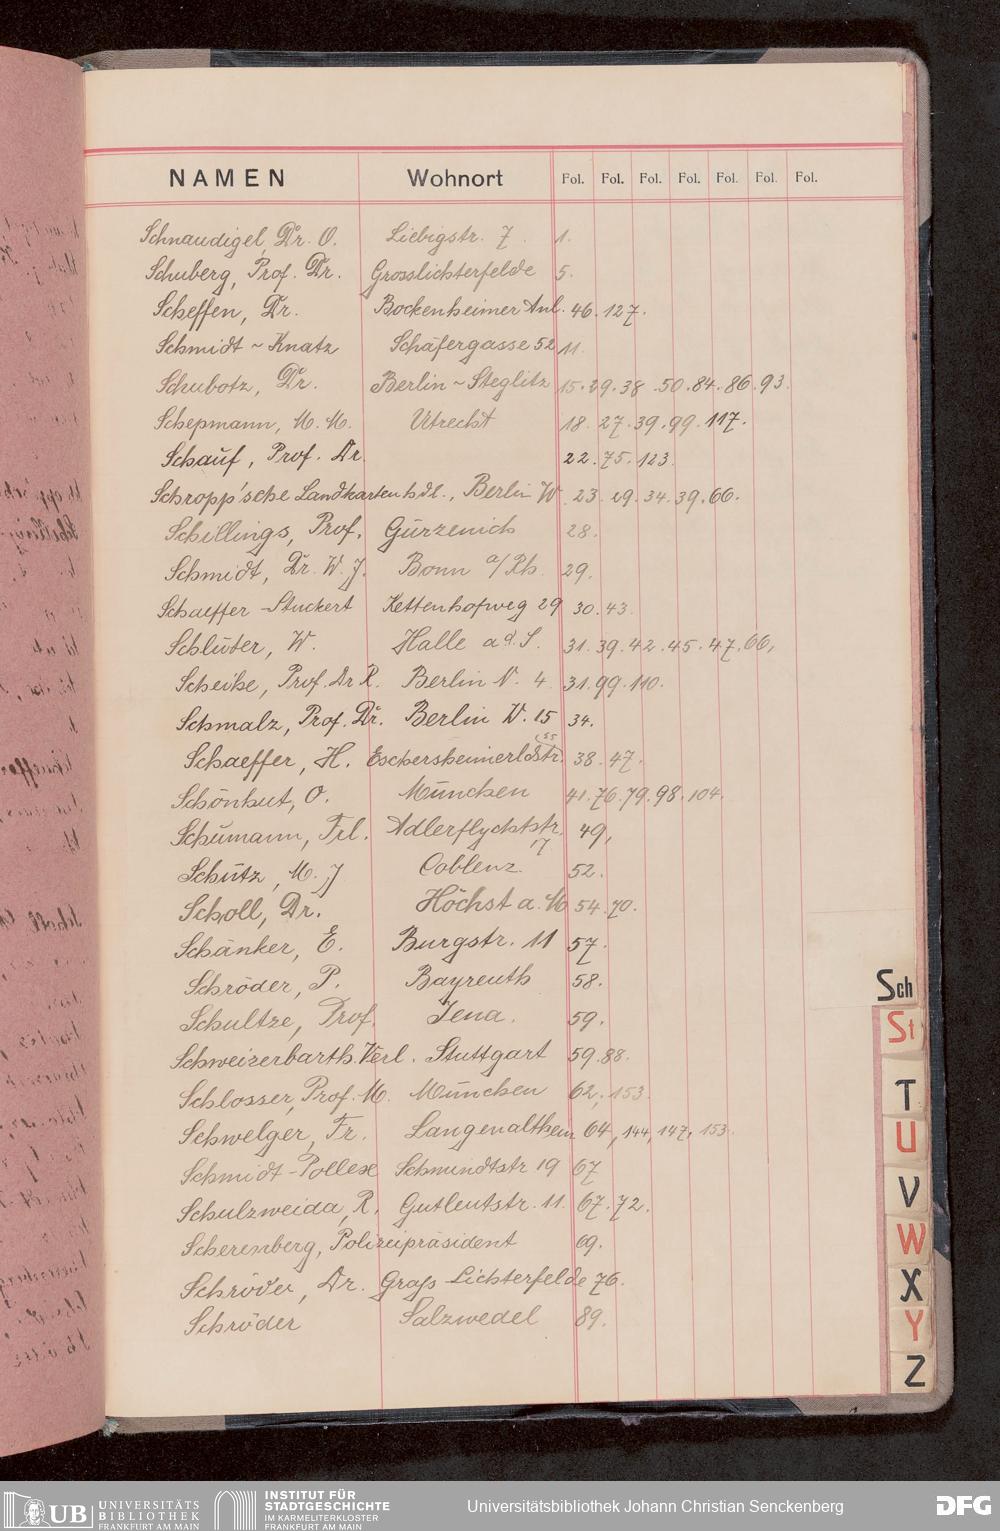 NAMEN Wohnort Fol. Fol. Fol. Fol. Fol. Fol. Fol.
Schnaudigel, Dr. O. Liebigstr. 7. 1.
Schuberg, Prof. Dr. Grosslichterfelde 5.
Scheffen, Dr. Bockenheimer Anl. 46. 127.
Schmidt ~ Knatz Schäfergasse 52 11.
Schubotz, Dr. Berlin ~ Steglitz 15. 29. 38. 50. 84. 86. 93.
Schepmann, M. M. Utrecht 18. 27. 39. 99. 117.
Schauf, Prof. Dr. 22. 75. 123.
Schropp'sche Landkartenhdl., Berlin W 23. 29. 34. 39. 66.
Schillings, Prof. Gürzenich 28.
Schmidt, Dr. W. J. Bonn a/Rh. 29.
Schaeffer-Stuckert Kettenhofweg 29 30. 43.
Schlüter, W. Halle a. d. S. 31. 39. 42. 45. 47. 66,
Scheibe, Prof. Dr R. Berlin N. 4 31. 99. 110.
Schmalz, Prof. Dr. Berlin W. 15 34.
Schaeffer, H. Eschersheimerldstr. 38. 47.
Schönhut, O. München 41. 76. 79. 98. 104.
Schumann, Frl. Adlerflychtstr. 49,
17
Schütz, M. J Coblenz 52.
Scholl, Dr. Höchst a. M 54. 70.
Schänker, E. Burgstr. 11 57.
Schröder, P. Bayreuth 58.
Schultze, Prof. Jena. 59.
Schweizerbarth. Verl. Stuttgart 59. 88.
Schlosser, Prof. M. München 62, 153.
Schwelger, Fr. Langenaltheim 64, 144, 147, 153.
Schmidt-Pollex Schwindtstr 19 67
Schulzweida, R. Gutleutstr. 11. 67. 72.
Scherenberg, Polizeipräsident 69.
Schröder, Dr. Gross-Lichterfelde 76.
Schröder Salzwedel 89.
Sch
St
T
U
V
W
X
Y
Z
UB UNIVERSITÄTS
BIBLIOTHEK
FRANKFURT AM MAIN
INSTITUT FÜR
STADTGESCHICHTE
IM KARMELITERKLOSTER
FRANKFURT AM MAIN
Universitätsbibliothek Johann Christian Senckenberg
DFG